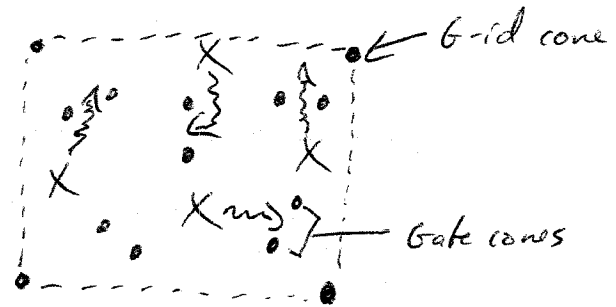 Grid cone
X
X
X
X
Gate cones